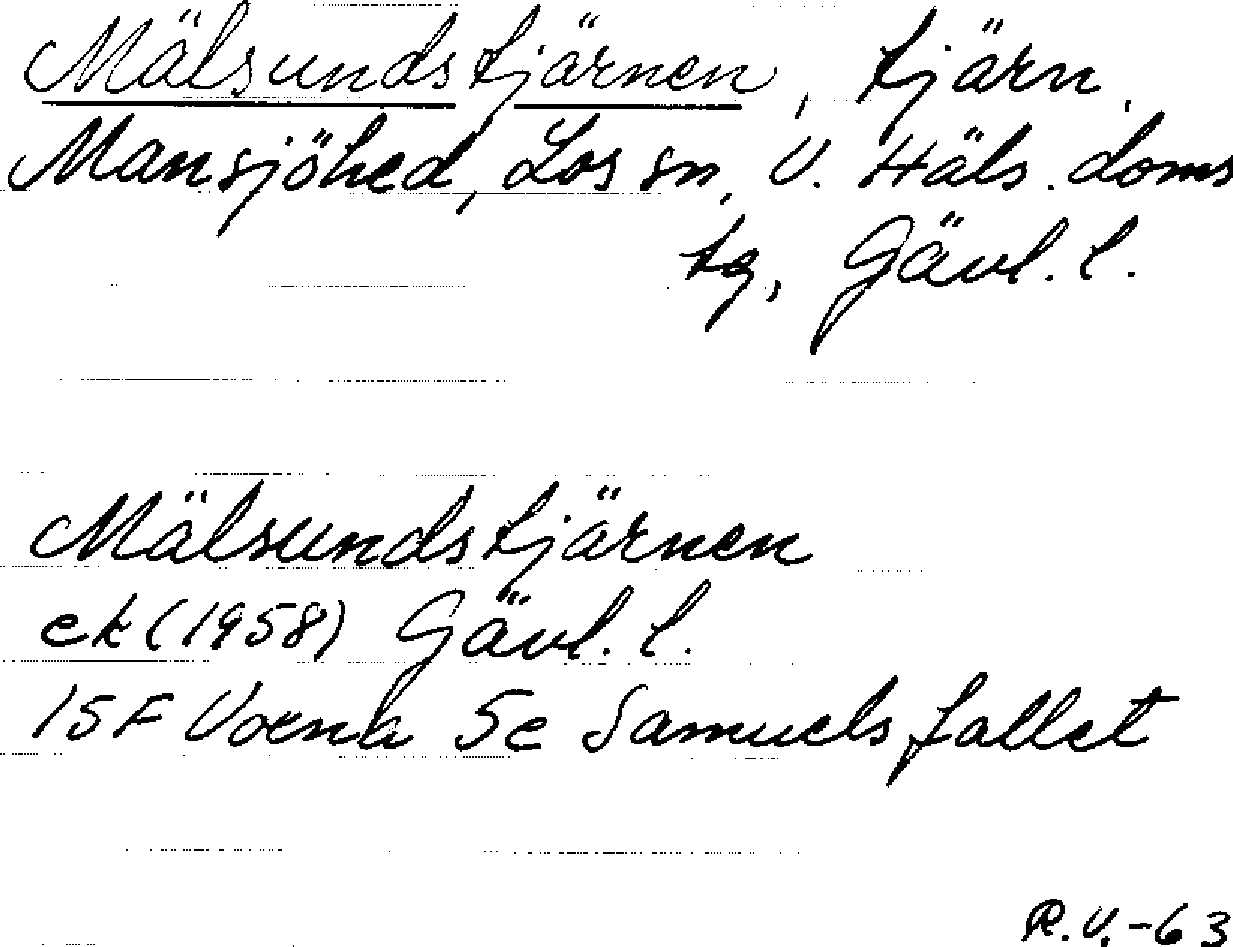 Mälsundstjärnen, tjärn,
Mansjöhed, Los sn, V. Häls. doms
tg, Gävl. l.
Mälsundstjärnen
ek (1958) Gävl. l.
15F Voxna 5e Samuelsfallet
R.V.-63